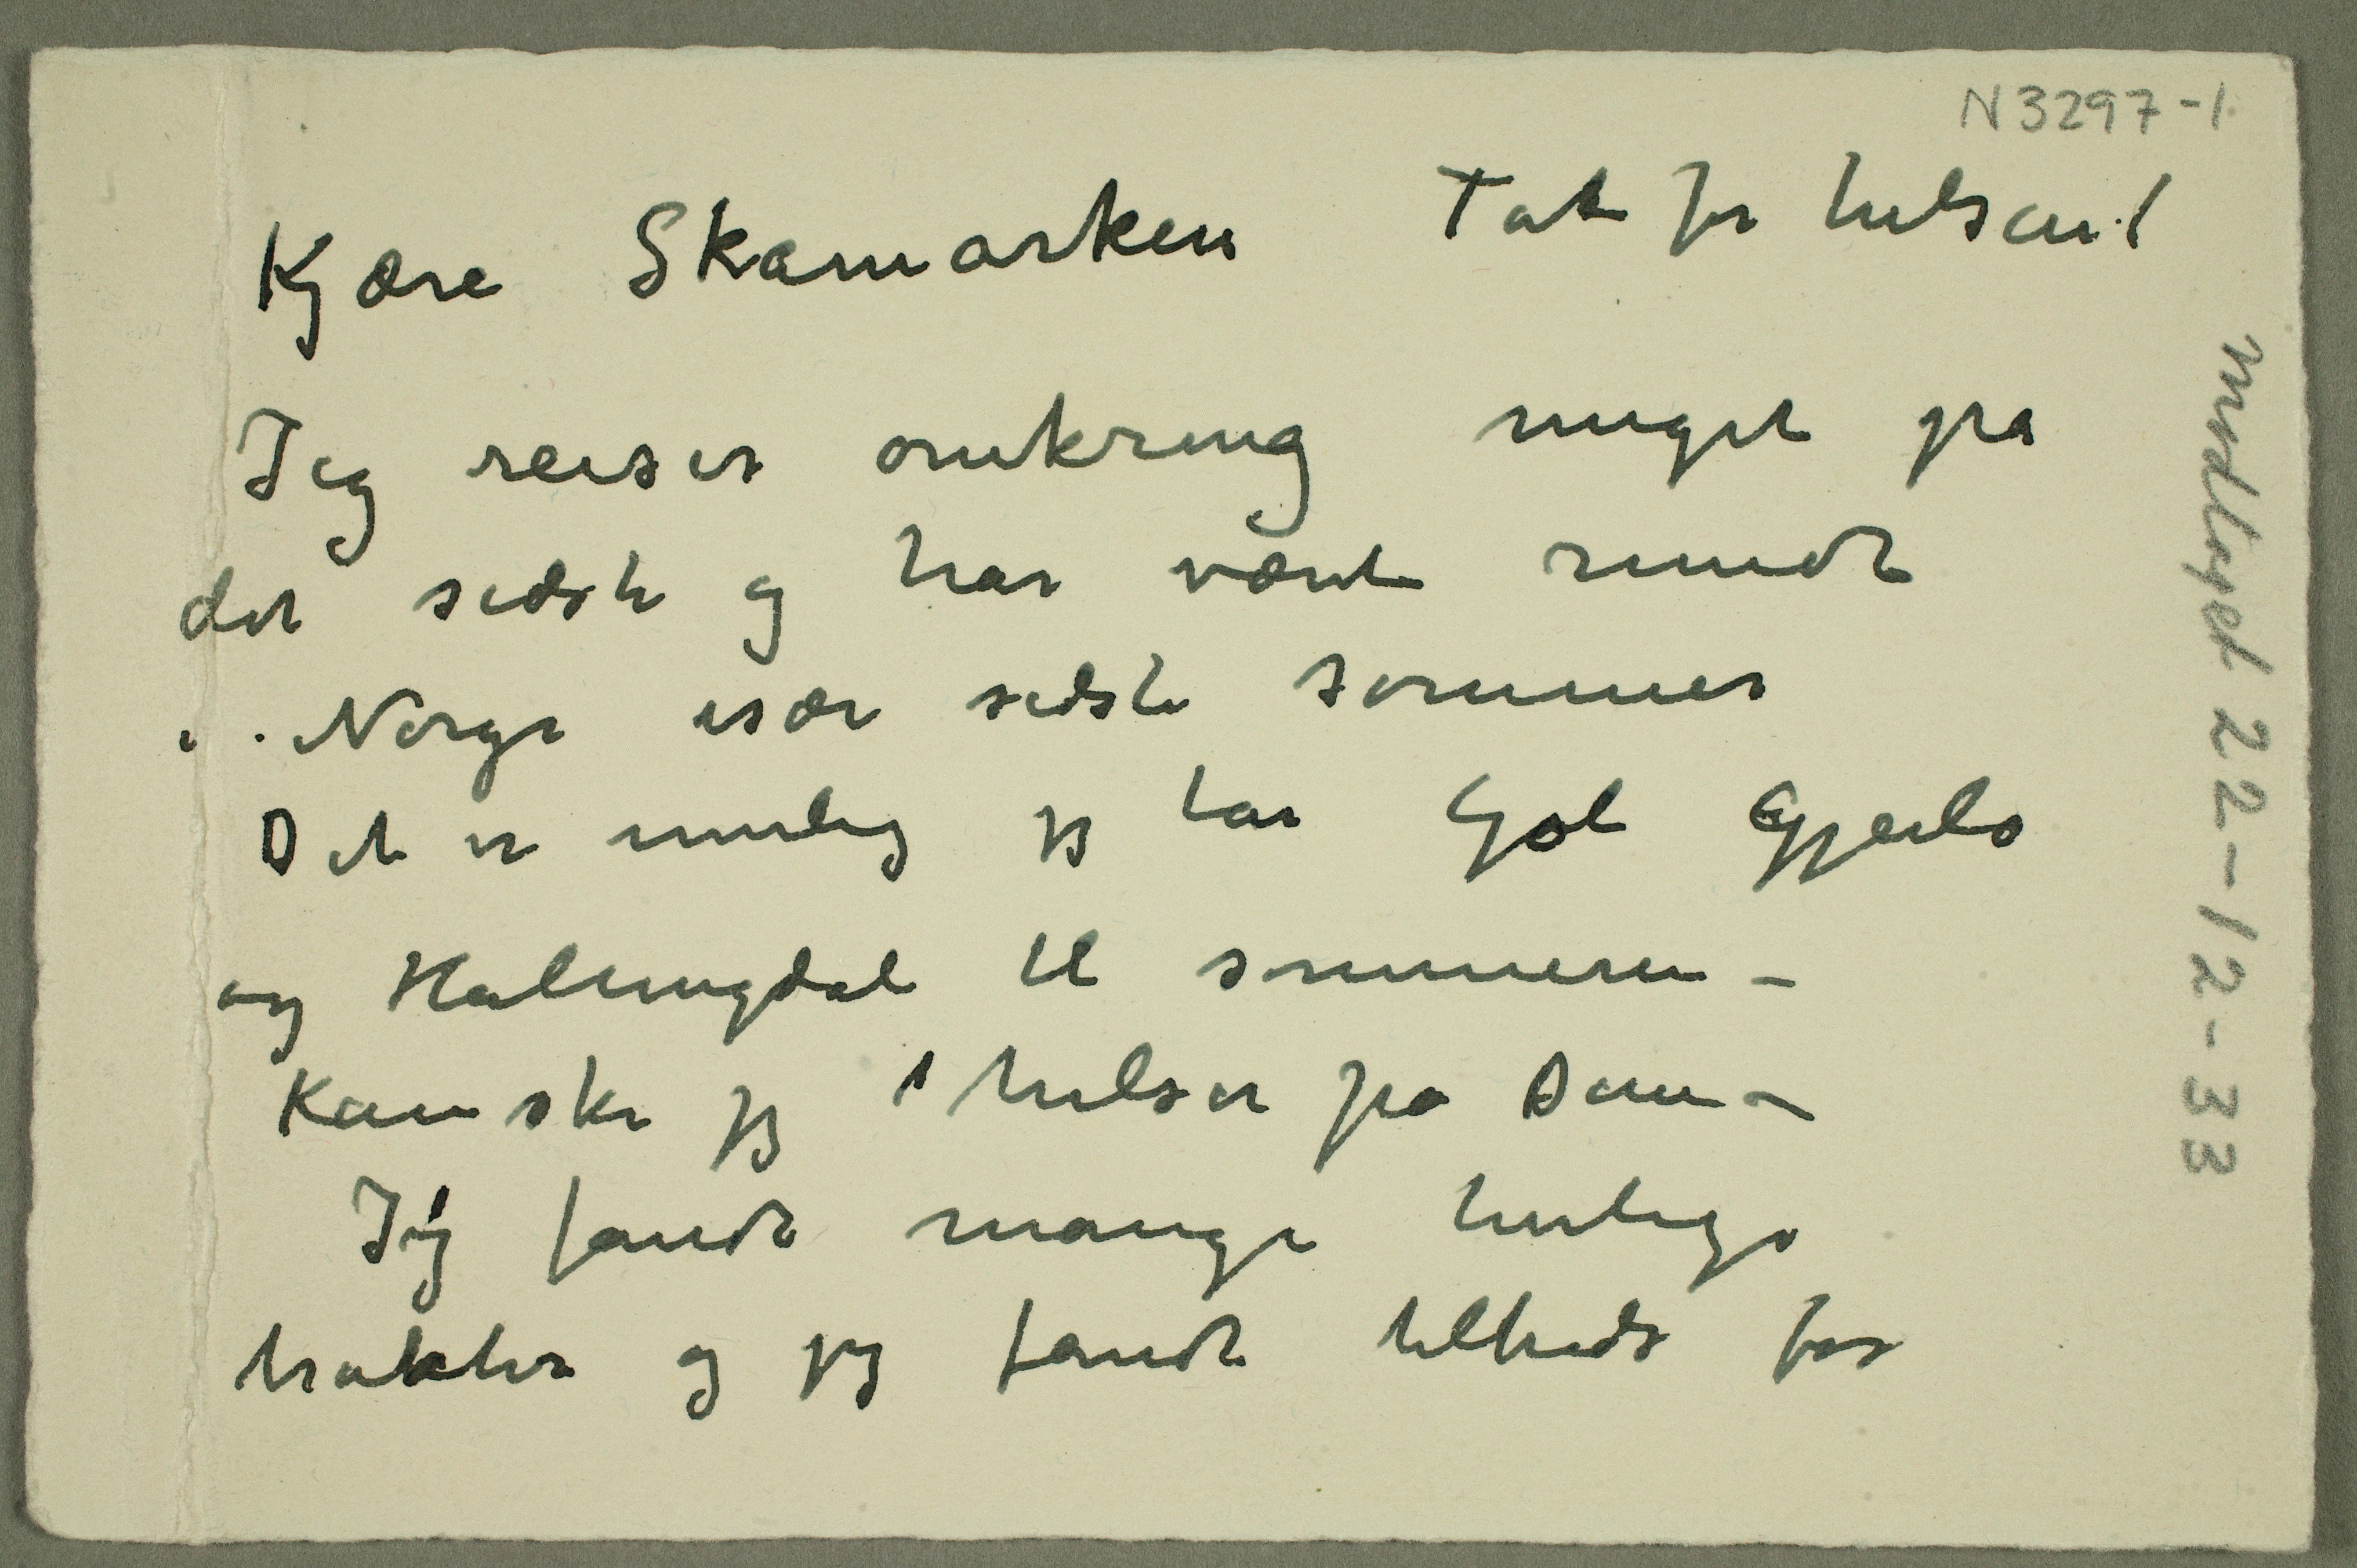 N3297-1
Kjære Skamarken Tak for helsen!
Jeg reiser omkring meget på
det sidste og har været rundt
i Norge især sidste sommer
Det er mulig jeg tar Gol Gjeilo
og Hallingdal til sommeren –
Kanske jeg helser på Dem –
Jeg fandt mange herlige
trakter og jeg fandt tilfreds for
medtaget 22-12-33